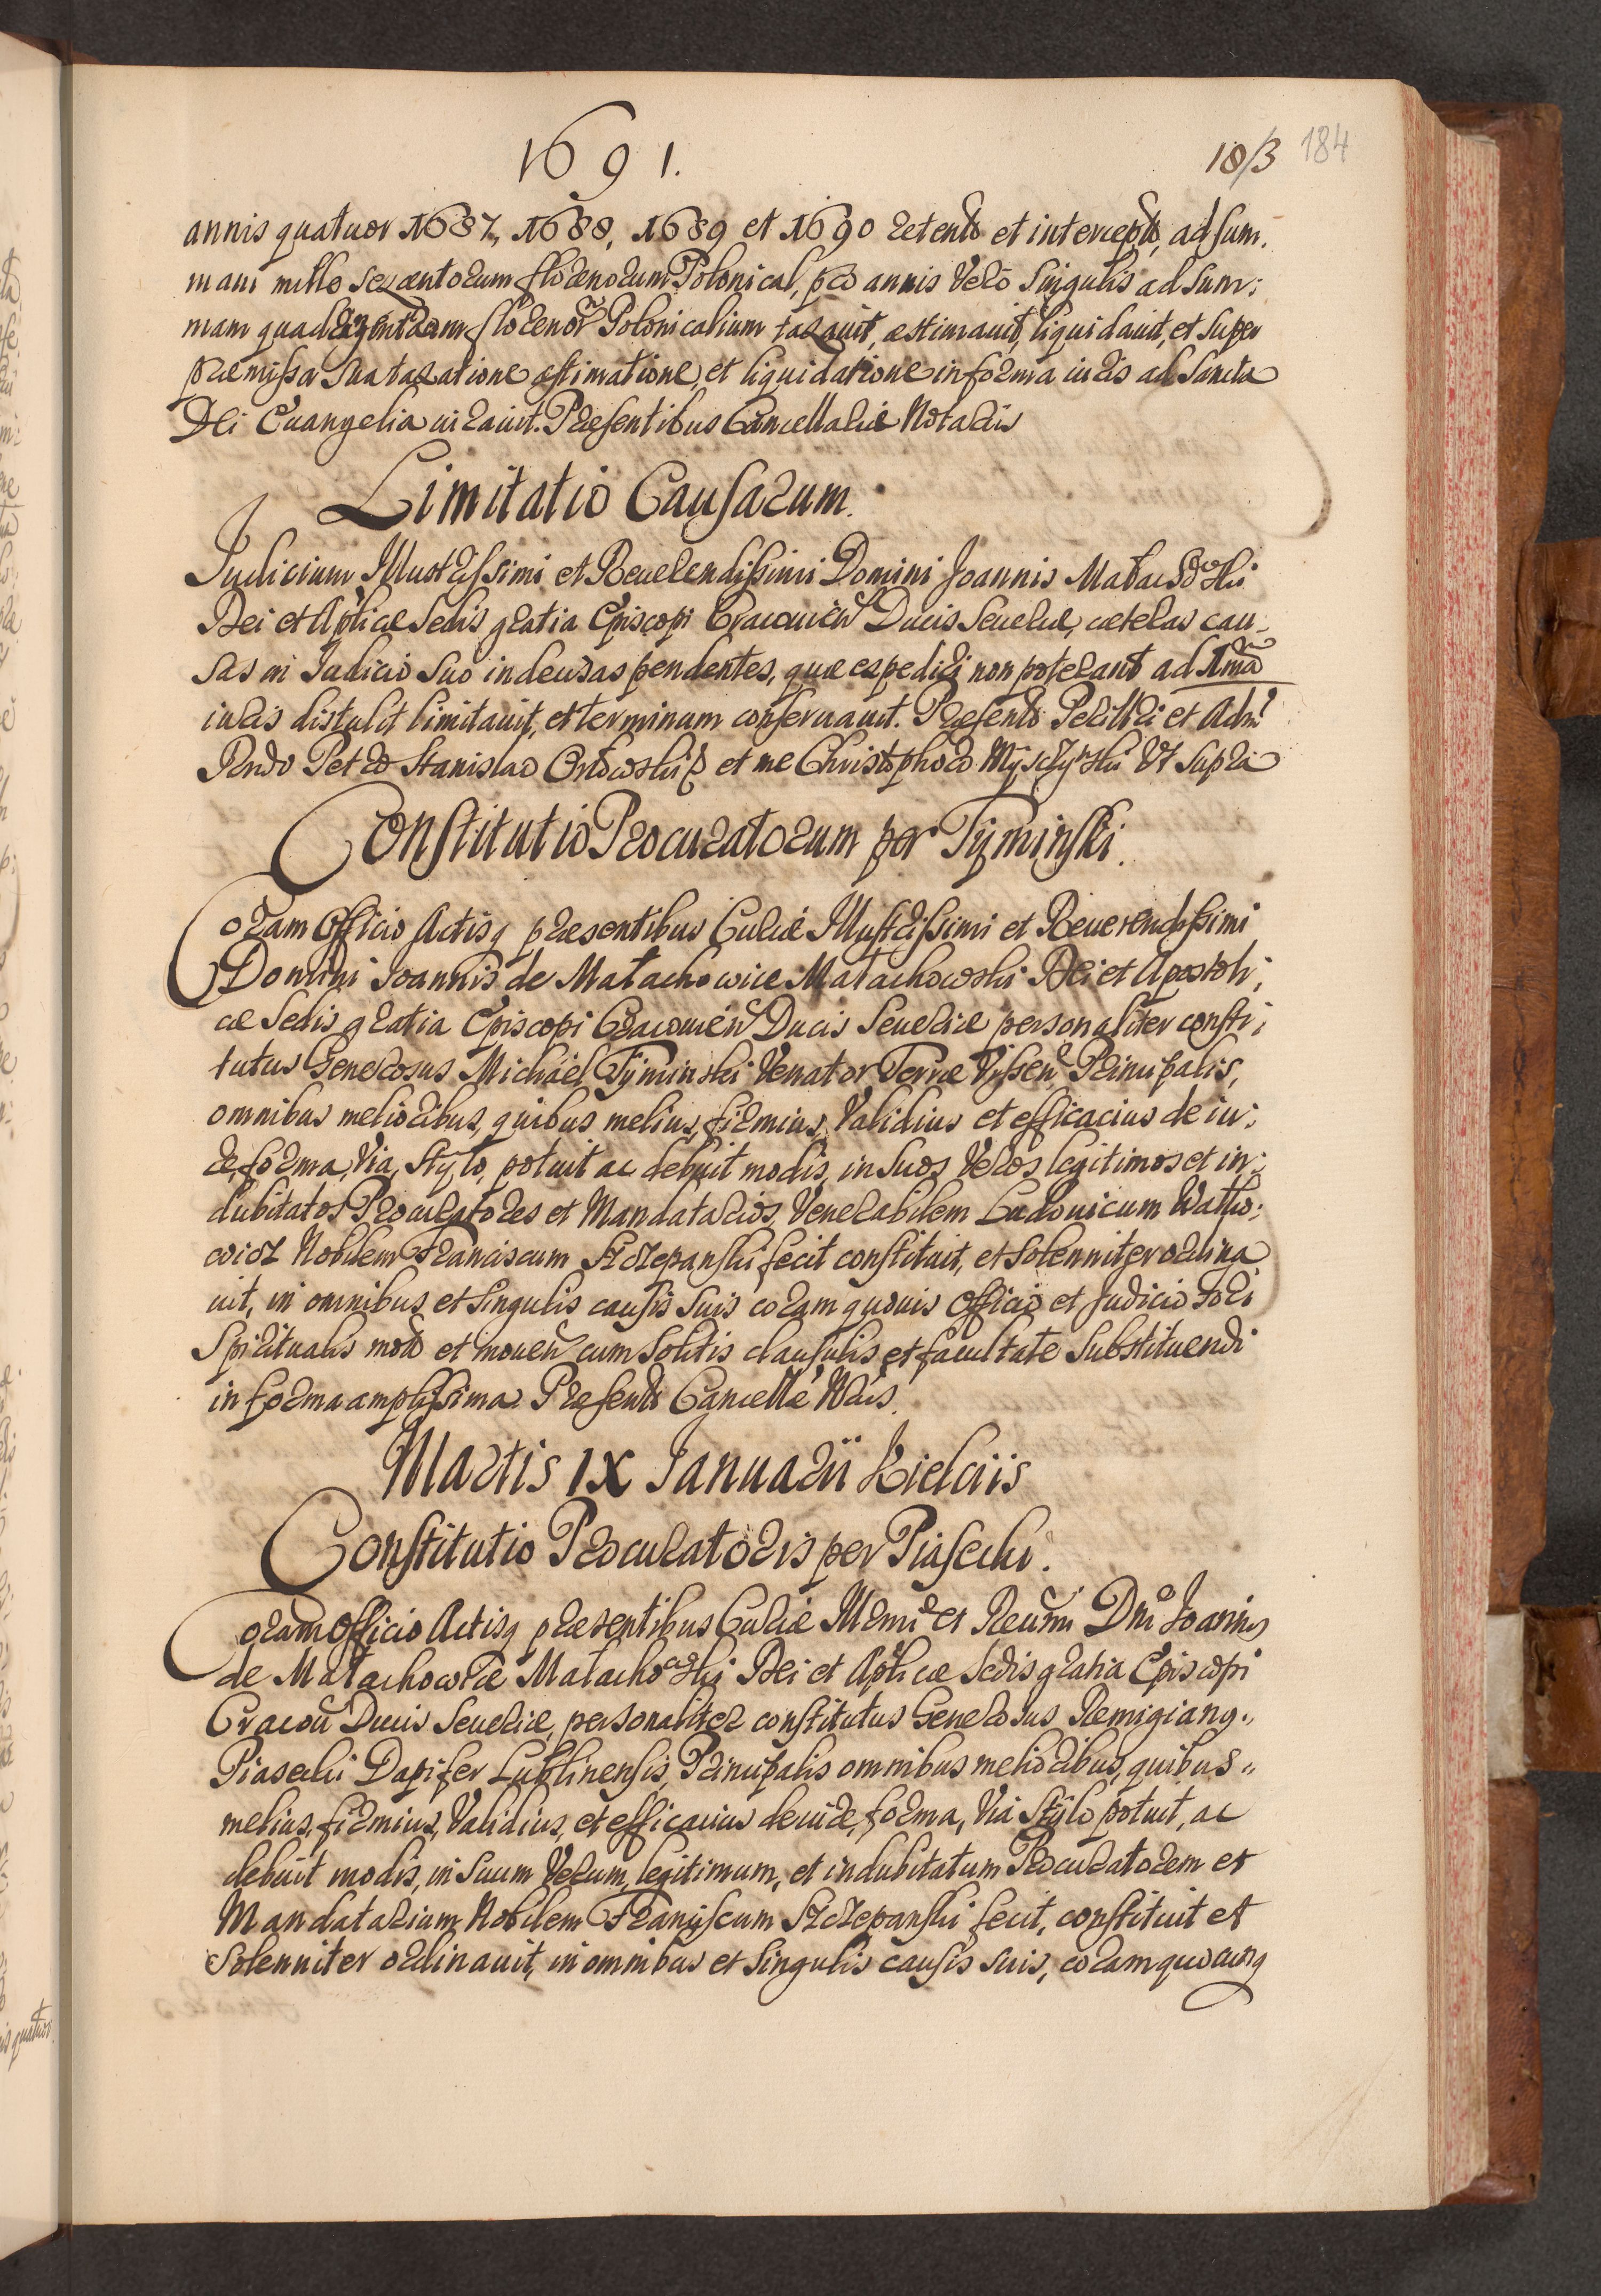 1691.
183 184
annis quatuor 1687, 1688, 1689 et 1690 retento et intercepto, ad sum:
mam mille sexcentorum florenorum Polonical, pro annis vero singulis ad sum:
mam quadringentorum florenor Polonicalium taxavit, æstimavit, liquidavit, et super
præmissa sua taxatione æstimatione, et liquidatione in forma iuris ad Sancta
Dei Evangelia iuravit. Præsentibus Cancellariæ Notariis
Limitatio Causarum.
Judicium Illustrissimi et Reverendissimi Domini Joannis Małachowski
Dei et Aplicæ Sedis gratia Episcopi Cracovien Ducis Severiæ, cæteras cau:
sas in Judicio suo indecisas pendentes, quæ expediri non poterant ad
iuris distulit limitavit, et terminum conservavit. Præsente Perillri et Adm
Rendo Petro Stanislao Orłowski et me Christophoro Myszczyski Ut supra
Constitutio Procuratorum per Tyminski.
Coram Officio Actisq præsentibus Curiæ Illustrissimi et Reverendissimi
Domini Joannis de Małachowice Małachowski Dei et Apostoli:
cæ Sedis gratia Episcopi Cracovien Ducis Severiæ personaliter consti:
tutus Generosus Michaël Tyminski Venator Terræ Vissen Principalis,
omnibus melioribus, quibus melius, firmius, validius et efficacius de iu:
re, forma, via, stylo, potuit ac debuit modis, in suos veros legitimos et in:
dubitatos Procuratores et Mandatarios, Venerabilem Ludovicum
Nobilem Franciscum Szczepanski fecit constituit, et solenniter ordina
vit, in omnibus et singulis causis suis coram quovis Officio et Judicio fori
Spiritualis moto et moven cum solitis clausulis et facultate substituendi
in forma amplissima Præsent Cancellæ Nris.
Martis IX Januarii Kielciis
Constitutio Procuratoris per Piasecki.
Coram Officio Actisq præsentibus Curiæ Illrmi et Reumi Dni Joannis
de Małachowice Małachowski Dei et Aplicæ Sedis gratia Episcopi
Cracovn Ducis Severiæ, personaliter constitutus Generosus Remigiang
Piasecki Dapifer Lublinensis, Principalis omnibus melioribus, quibus
melius, firmius, validius, et efficacius de iure, forma, via stylo potuit, ac
debuit modis, in suum verum, legitimum, et indubitatum Procuratorem et
Mandatarium Nobilem Franciscum Szczepanski fecit, constituit et
solenniter ordinavit, in omnibus et singulis causis suis, coram quocunq